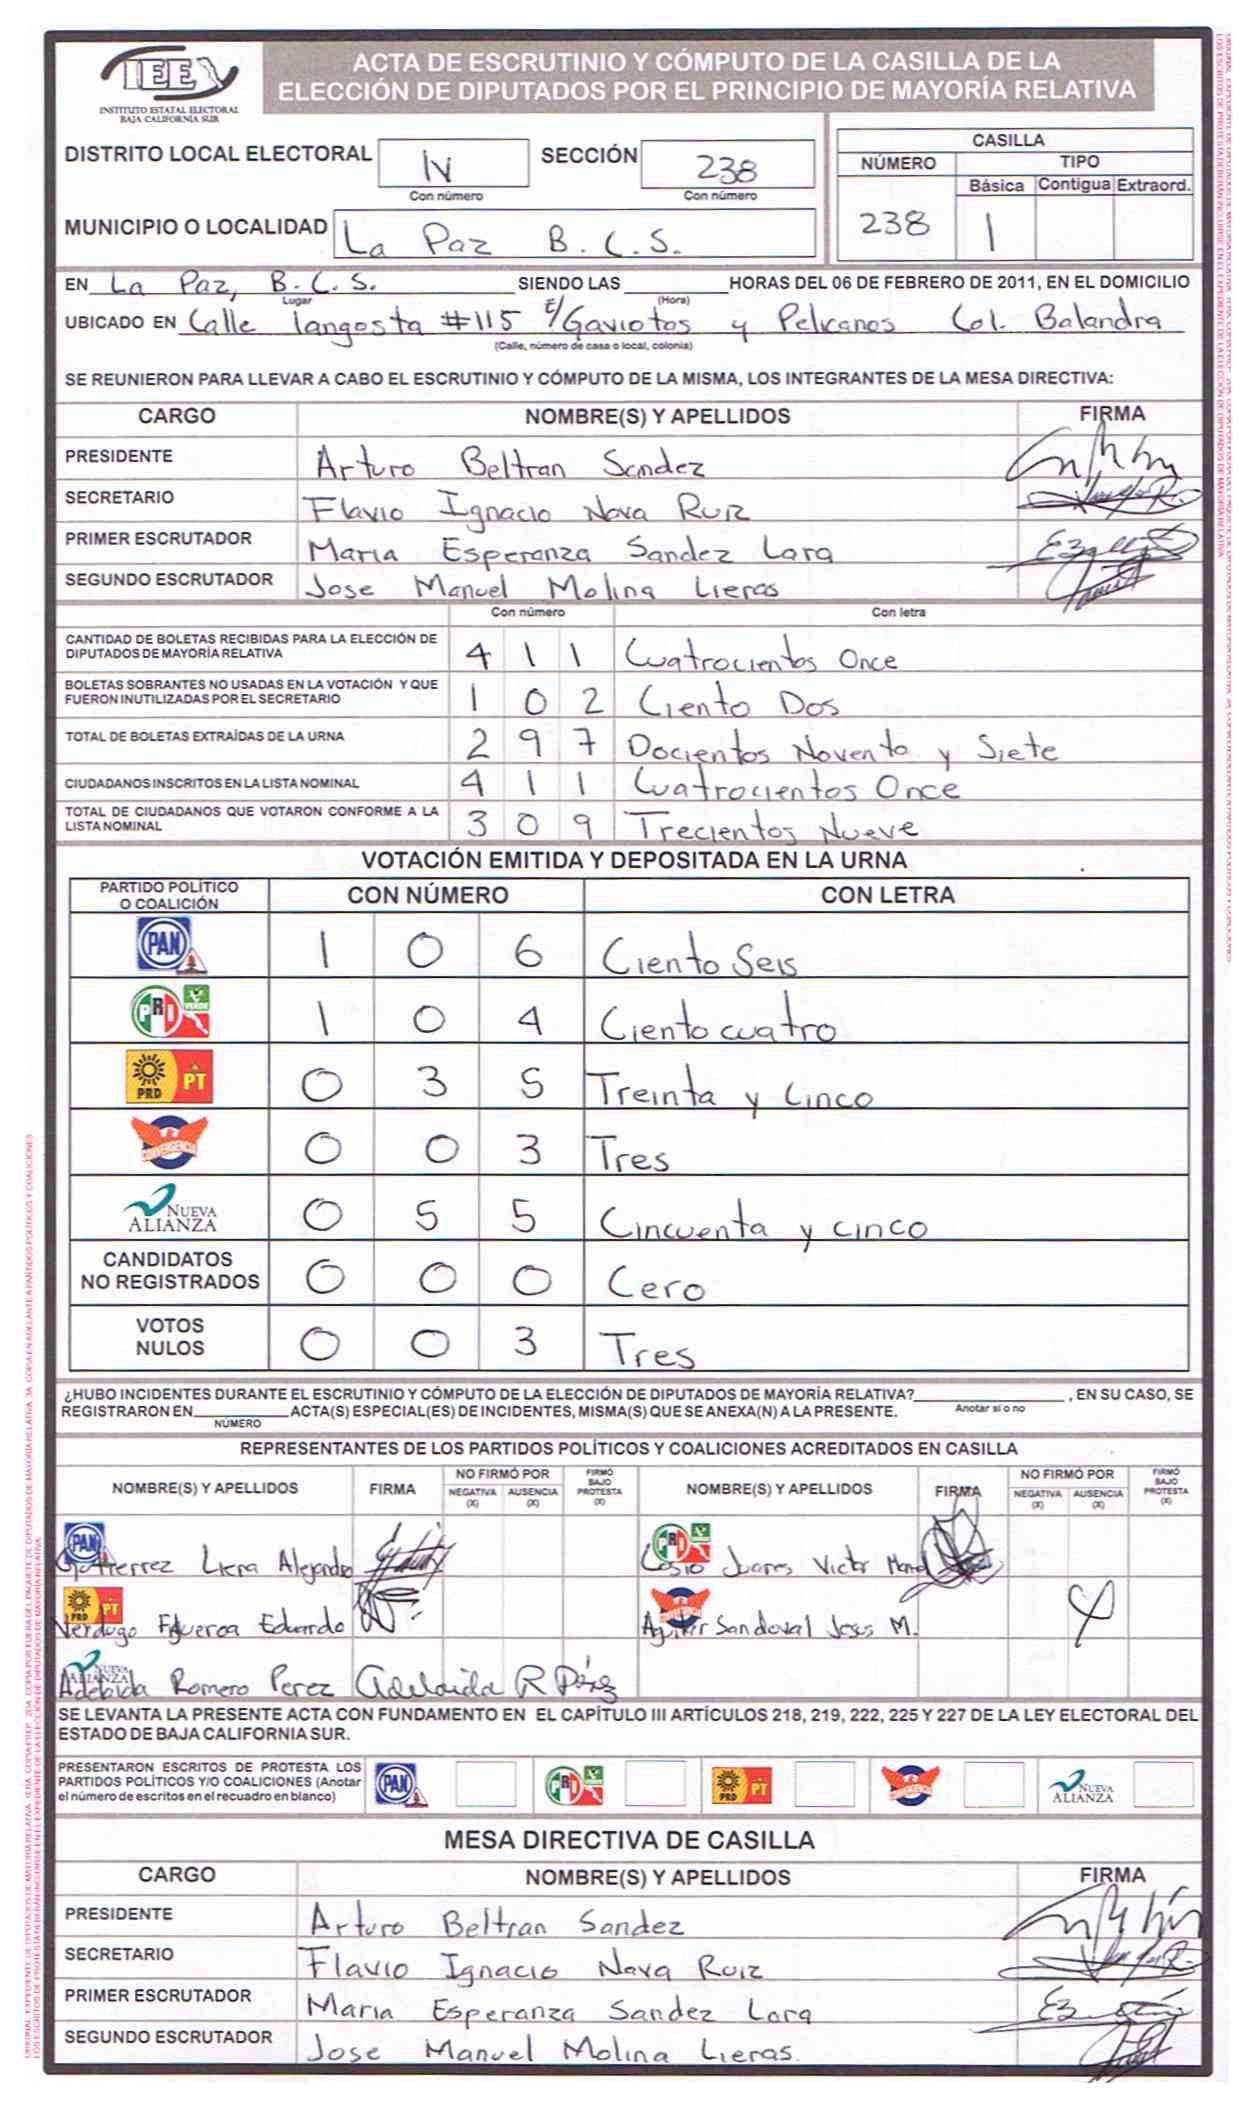 IEEBCS
INSTITUTO ESTATAL ELECTORAL
BAJA CALIFORNIA SUR
ACTA DE ESCRUTINIO Y CÓMPUTO DE LA CASILLA DE LA
ELECCIÓN DE DIPUTADOS POR EL PRINCIPIO DE MAYORÍA RELATIVA
DISTRITO LOCAL ELECTORAL IV SECCIÓN 238
Con número Con número
MUNICIPIO O LOCALIDAD La Paz B.C.S.
CASILLA
NÚMERO TIPO
Básica Contigua Extraord.
238 1
EN La Paz, B.C.S. SIENDO LAS HORAS DEL 06 DE FEBRERO DE 2011, EN EL DOMICILIO
Lugar (Hora)
UBICADO EN Calle langosta #115 E/Gaviotas y Pelicanos Col. Balandra
(Calle, número de casa o local, colonia)
SE REUNIERON PARA LLEVAR A CABO EL ESCRUTINIO Y CÓMPUTO DE LA MISMA, LOS INTEGRANTES DE LA MESA DIRECTIVA:
CARGO NOMBRE(S) Y APELLIDOS FIRMA
PRESIDENTE Arturo Beltran Sandez
SECRETARIO Flavio Ignacio Nava Ruiz
PRIMER ESCRUTADOR Maria Esperanza Sandez Lara
SEGUNDO ESCRUTADOR Jose Manuel Molina Lieras
Con número Con letra
CANTIDAD DE BOLETAS RECIBIDAS PARA LA ELECCIÓN DE
DIPUTADOS DE MAYORÍA RELATIVA 4 1 1 Cuatrocientos Once
BOLETAS SOBRANTES NO USADAS EN LA VOTACIÓN Y QUE
FUERON INUTILIZADAS POR EL SECRETARIO 1 0 2 Ciento Dos
TOTAL DE BOLETAS EXTRAÍDAS DE LA URNA 2 9 7 Docientos Noventa y Siete
CIUDADANOS INSCRITOS EN LA LISTA NOMINAL 4 1 1 Cuatrocientos Once
TOTAL DE CIUDADANOS QUE VOTARON CONFORME A LA
LISTA NOMINAL 3 0 9 Trecientos Nueve
VOTACIÓN EMITIDA Y DEPOSITADA EN LA URNA
PARTIDO POLÍTICO
O COALICIÓN CON NÚMERO CON LETRA
PAN 1 0 6 Ciento Seis
PRI VERDE 1 0 4 Ciento cuatro
PRD PT 0 3 5 Treinta y Cinco
CONVERGENCIA 0 0 3 Tres
NUEVA ALIANZA 0 5 5 Cincuenta y cinco
CANDIDATOS
NO REGISTRADOS 0 0 0 Cero
VOTOS
NULOS 0 0 3 Tres
¿HUBO INCIDENTES DURANTE EL ESCRUTINIO Y CÓMPUTO DE LA ELECCIÓN DE DIPUTADOS DE MAYORÍA RELATIVA? , EN SU CASO, SE
Anotar sí o no
REGISTRARON EN ACTA(S) ESPECIAL(ES) DE INCIDENTES, MISMA(S) QUE SE ANEXA(N) A LA PRESENTE.
NÚMERO
REPRESENTANTES DE LOS PARTIDOS POLÍTICOS Y COALICIONES ACREDITADOS EN CASILLA
NOMBRE(S) Y APELLIDOS FIRMA NO FIRMÓ POR NEGATIVA (X) AUSENCIA (X) FIRMÓ BAJO PROTESTA (X) NOMBRE(S) Y APELLIDOS FIRMA NO FIRMÓ POR NEGATIVA (X) AUSENCIA (X) FIRMÓ BAJO PROTESTA (X)
PAN Gutierrez Liera Alejandro PRI Cosio Juares Victor Manel
PRD PT Verdugo Figueroa Eduardo CONVERGENCIA Aguilar Sandoval Jesus M. X
NUEVA ALIANZA Adelaida Romero Perez Adelaida R Pérez
SE LEVANTA LA PRESENTE ACTA CON FUNDAMENTO EN EL CAPÍTULO III ARTÍCULOS 218, 219, 222, 225 Y 227 DE LA LEY ELECTORAL DEL
ESTADO DE BAJA CALIFORNIA SUR.
PRESENTARON ESCRITOS DE PROTESTA LOS
PARTIDOS POLÍTICOS Y/O COALICIONES (Anotar
el número de escritos en el recuadro en blanco) PAN PRI PRD PT CONVERGENCIA NUEVA ALIANZA
MESA DIRECTIVA DE CASILLA
CARGO NOMBRE(S) Y APELLIDOS FIRMA
PRESIDENTE Arturo Beltran Sandez
SECRETARIO Flavio Ignacio Nava Ruiz
PRIMER ESCRUTADOR Maria Esperanza Sandez Lara
SEGUNDO ESCRUTADOR Jose Manuel Molina Lieras.